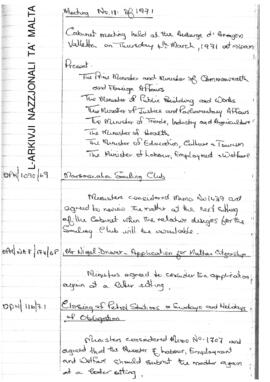 L-ARKIVJI NAZZJONALI TA' MALTA
Meeting No. 18 of 1971
Cabinet meeting held at the Auberge d'Aragon
Valletta on Thursday March, 1971 at
Present:
The Prime Minister and Minister of Commonwealth
and Foreign Affairs
The Minister of Public Building and Works
The Minister of Justice and Parliamentary Affairs
The Minister of Trade, Industry and Agriculture
The Minister of Health
The Minister of Education, Culture & Tourism
The Minister of Labour, Employment & Welfare
OPM/1090/69
Marsaxlokk Sailing Club
Ministers considered Memo No. and
agreed to review the matter at the next sitting
of the Cabinet when the relative designs for the
Sailing Club will be available.
Mr Nigel - Application for Maltese Citizenship
Ministers agreed to consider the application
again at a later sitting.
OPM/118/71
Closing of Petrol Stations - Sundays and Holidays
of Obligation
Ministers considered Memo No. 1707 and
agreed that the Minister of Labour, Employment
and Welfare should submit the matter again
at a later sitting.